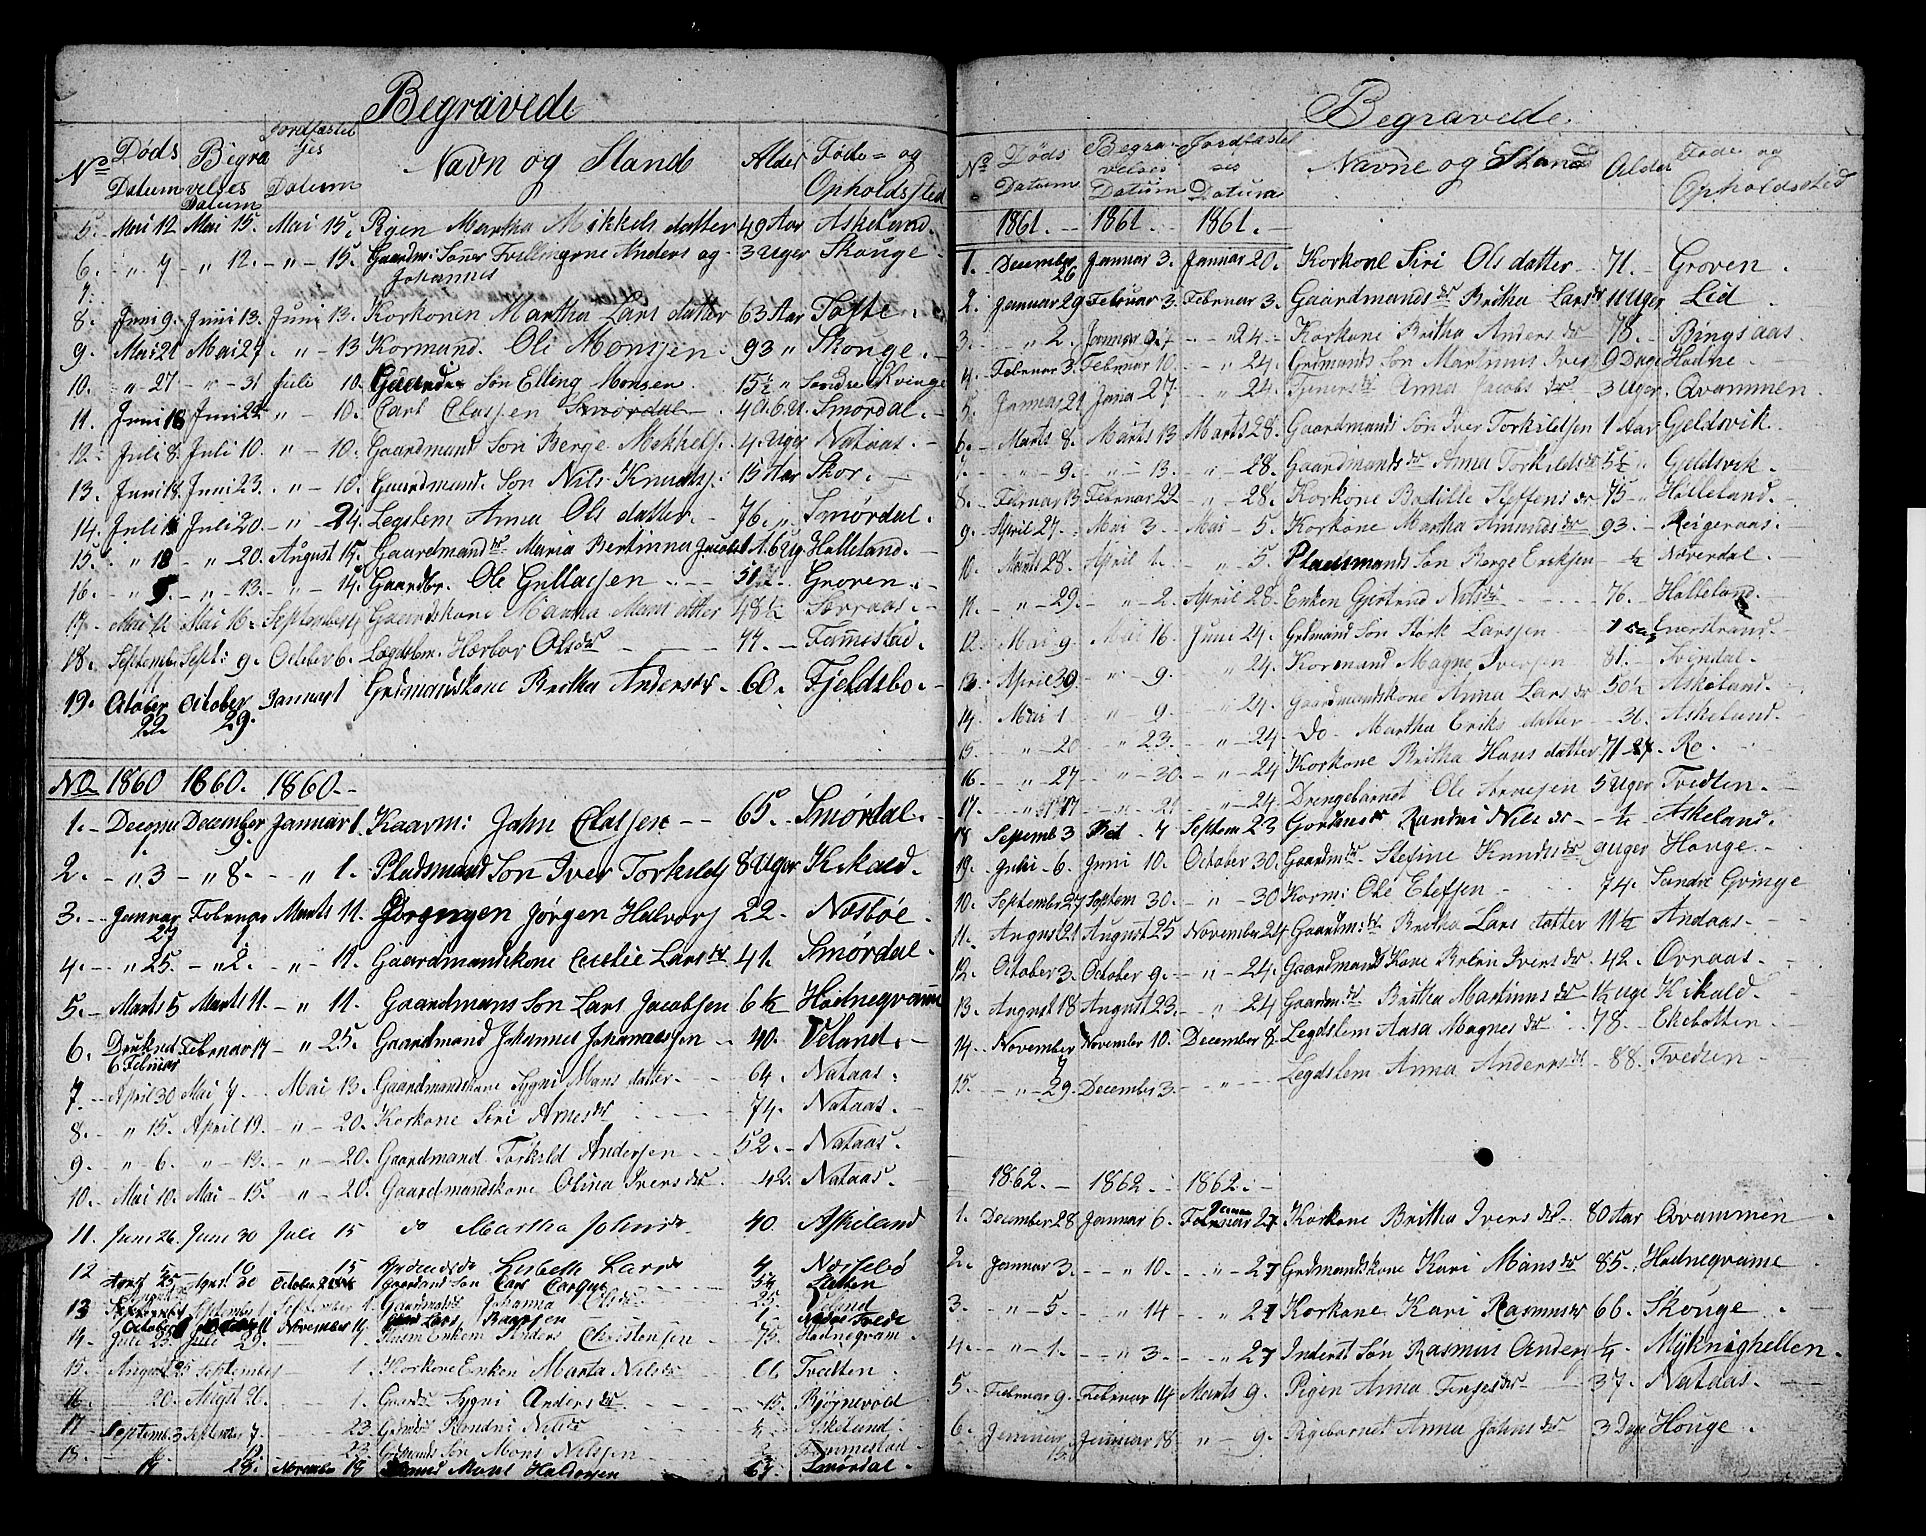 Begravede
Nº Døds Datum Begravelses Datum Jordfæstelses Datum Navn og Stand Alder Føde= og Opholdssted
5. Mai 12 Mai 15. Mai 15. Pigen Martha Mikkels datter 49 Aar Askeland.
6. " 7 " 12. " 15. Gaardm: Søner Tvillingerne Anders og 3 Uger Skouge
7. Johannes
8. Juni 9. Juni 13. Juni 13. Korkonen Martha Lars datter 63 Aar Tofte.
9. Mai 21 Mai 27. " 13 Kormand. Ole Monssen. 93 " Skouge.
10. " 27 " 31 Juli 10. Søn Elling Monsen 15½ " Søndre Kvinge
11. Juni 18 Juni 24 " 10. Carl Classen Smørdal 4 Smørdal.
12. Juli 8. Juli 10. " 10. Gaardmand Søn Berge Mikkels: 4 Uger Nataas.
13. Juni 18. Juni 23. " 10. Gaardmand. Søn Nils Knuds: 15 Aar Skor.
14. Juli Juli 20. " 24. Legslem Anna Ols datter. 76. " Smørdal.
15. " 18 " 20. August 15. Gaardmand dr Maria Bertinna Jacobs Halleland.
16. " 5. " 13. " 15. Gaardbr. Ole Gullacsen 51½ Groven.
17. Mai 11 Mai 16. September Gaardmandskone Martha Mons datter 48½ Sørraas.
18. Septemb: Sept: 9. October 6. Lægdslm. Hærbor Olsdr 77. Fammestad.
19. October 22 October 29. Januar 1 Grdmandskone Britha Andersdr. 60. Fjeldsbo.
No 1860 1860. 1860.
1. December 1. December 9. Januar 1. Kaarm: John Classen 65. Smørdal.
2. " 3 " 8. " 1. Pladsmand Søn Iver Torkilds 8 Uger Kikald.
3. Januar 27 Februar Marts 11. Jørgen Halvors 22. Næsbøe.
4. " 25. " 2. " 11. Gaardmandskone Cecilie Larsdr 41. Smørdal.
5. Marts 5 Marts 11. " 11. Gaardmans Søn Lars Jacobsen 6½ Hodnegvame
6. Druknd 6 Februar Februar 17 " 25. Gaardmand Johannes Johannessen 40. Veland.
7. April 30 Mai 7. Mai 13. Gaardmandskone Sygni Mons datter. 64. Nataas.
8. " 15. April 19. " 20. Korkone Siri Arnesdr 74. Nataas.
9. " 6. " 13. " 20. Gaardmand Torkild Andersen 52. Nataas.
10. Mai 10. Mai 15. " 20. Gaardmandskone Olina Iversdr 42. Nataas.
11. Juni 26. Juni 30 Juli 15 do Martha Johnsdr 40. Askeland
12 15 Lisbeth Larsdr 4. Næssebø
April 25. April 30 October Gaardmand Søn Carl
13 September 1. Gaardmdr Johanna Olsdr 25. Veland
October November Lars
14. Juli 25. Juli 29. Enkem Anders Christensen 75. Hodnegvam
15. August 25 September 1. Korkone Enken Marta Nilsdr 66 Tvedten
16. 20. August 26. 1. Sygni Andersdr 15. Bjørnevold
17 Septemb. 3 September 7 23. Randvi Nilsdr ½ Askeland.
18. 23. Grdmands Søn Mons Nilssen Fammestad
28. November 18 Mons Haldorsen 67. Smørdal.
Begravede.
Nº Døds Datum Begravelses Datum Jordfæstelses Datum Navne og Stand Alder Føde og Opholdssted
1861. 1861. 1861.
1. December 26 Januar 3. Januar 20. Korkone Siri Ols datter 71. Groven.
2. Januar 29 Februar 3. Februar 3. Gaardmands dr Britha Larsdr 11 Uger Lid.
3. " 2. Januar " 24 Korkone Britha Anders dr 78. Bingsaas.
4. Februar 3. Februar 10. " 24. Grdmands Søn Martinus Iver 9 Dage Hodne.
5. Januar 21 Janua 27. " 24. Tjeners dr Anna Jacobs dr 3 Uger. Qvammen.
6. Marts 8. Marts 13 Marts 28. Gaardmands Søn Iver Torkildsen 1 Aar Gjeldsvik.
7. " 9. " 13. " 28. Gaardmands dr Anna Torkilds dr 5½ Gjeldsvik.
8. Februar 13 Februar 22 " 28. Korkone Bodille Steffens dr 75 Halleland.
9. April 27. Mai 3. Mai 5. Korkone Martha Amunds dr 93. Reigeraas.
10. Marts 28. April 1. " 5. Pladsmands Søn Berge Eriksen ½ Noverdal.
11. " 29. " 2. April 28. Enken Gjertrud Nilsdr 76. Halleland.
12. Mai 9. Mai 16. Juni 24. Grdmand Søn Stork Larssen 1 Dag Enerstrand.
13 April 30 " 9. " 24. Kormand Magne Iversen 81. Svindal.
14. Mai 1 " 9. " 24. Gaardmandskone Anna Lars dr 50½ Askeland.
15. " 20 " 23. " 24 Do Martha Eriks datter 36. Askeland.
16. " 27 " 30. " 24 Korkone Britha Hans datter 71 Ro.
17. " 17 " 21 " 24 Drengebarnet Ole 5 Uger Tvedten.
18 Septemb 3 7 Septem 23 Randvi Nils dr ½ Askeland.
19. Juni 6. Juni 10. October 30. Gaardmdr Stefine Knuds dr 9 Uger Houge.
10. September 27 Septem 30. " 30 Korm: Ole Elefsen 74. Søndre Gvinge
11. August 21 August 25 November 24 Gaardm: dr Britha Lars datter 11½ Andaas.
12. October 3. October 9. " 24. Gaardmand Kone Brita Ivers dr 42. Ovraas.
13. August 18 August 23. " 24 Gaardm dr Britha Martinusdr 1½ Uge Kikald.
14 November 7 November 10. December 8. Legdslem Aasa Magnes dr 78. Ekebotten
15. " 29. December 3. " Legdslem Anna Anders dr 88. Tvedten
1862. 1862. 1862.
1. December 28 Januar 6. Januar 27 Korkone Britha Ivers dr. 80 Aar Qvammen
2. Januar 3. " 10. " 27 Grdmandskone Kari Monsdr 85. Hodnegvame
3. " 5. " 14 " 27 Korkone Kari Rasmusdr 66. Skouge
4. " 1. " 3. " 27 Inderst Søn Rasmus Anders ¼. Mykinghellen.
5. Februar 9. Februar 14 Marts 9. Pigen Anna 37. Nataas
6. Januar 15. Januar 18. " 9. Pigebarnet Anna Johansdr 3 Dage Houge